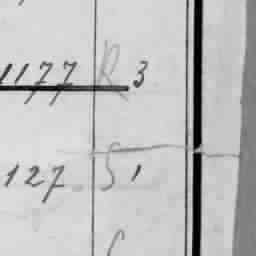 1177 R 3
127 S 1